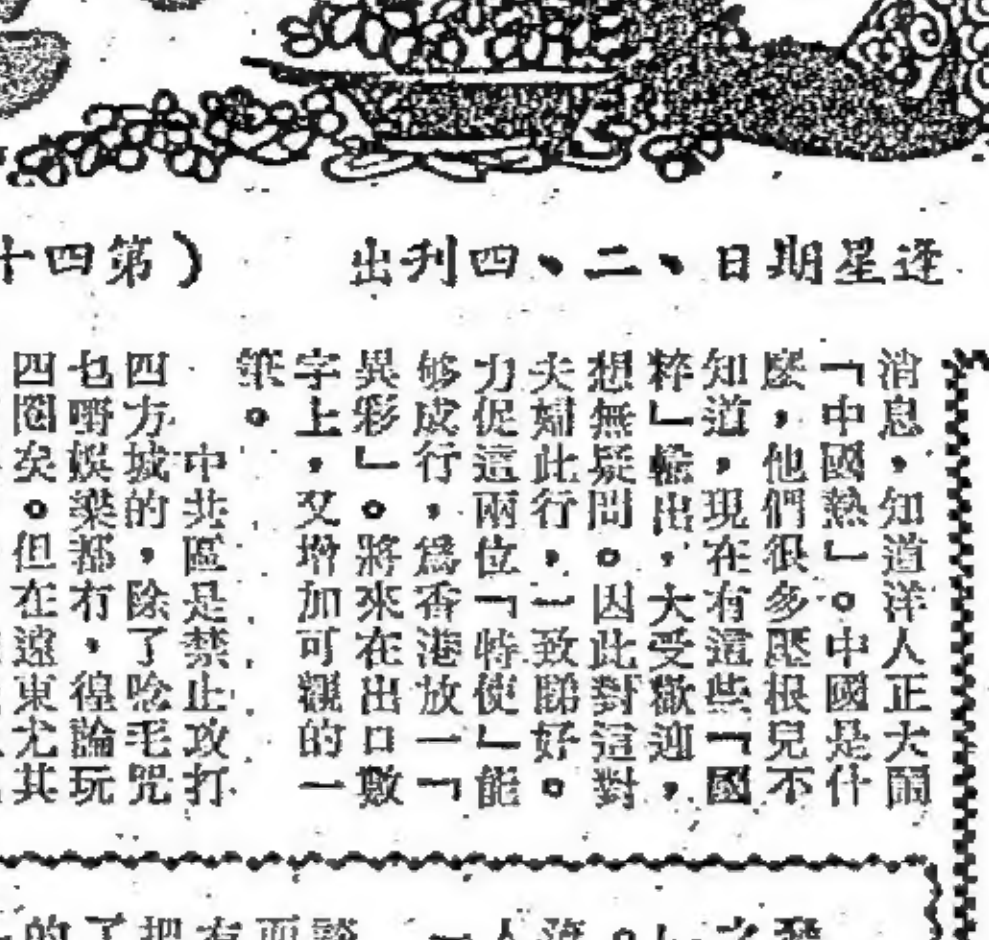 逢星期日、二、四刊出
（第四十
消息，知道洋人正大鬧
「中國熱」。中國是什
麼，他們很多壓根兒不
知道，現在有這些「國
粹」輸出，大受歡迎，
想無疑問。因此對這對
夫婦此行，一致睇好。
力促這兩位「特使」能
够成行，爲香港放一「
異彩」。將來在出口數
字上，又增加可觀的一
筆。
中共區是禁止攻打
四方城的，除了唸毛咒
乜嘢娛樂都冇，遑論玩
四圈矣。但在遠東尤其